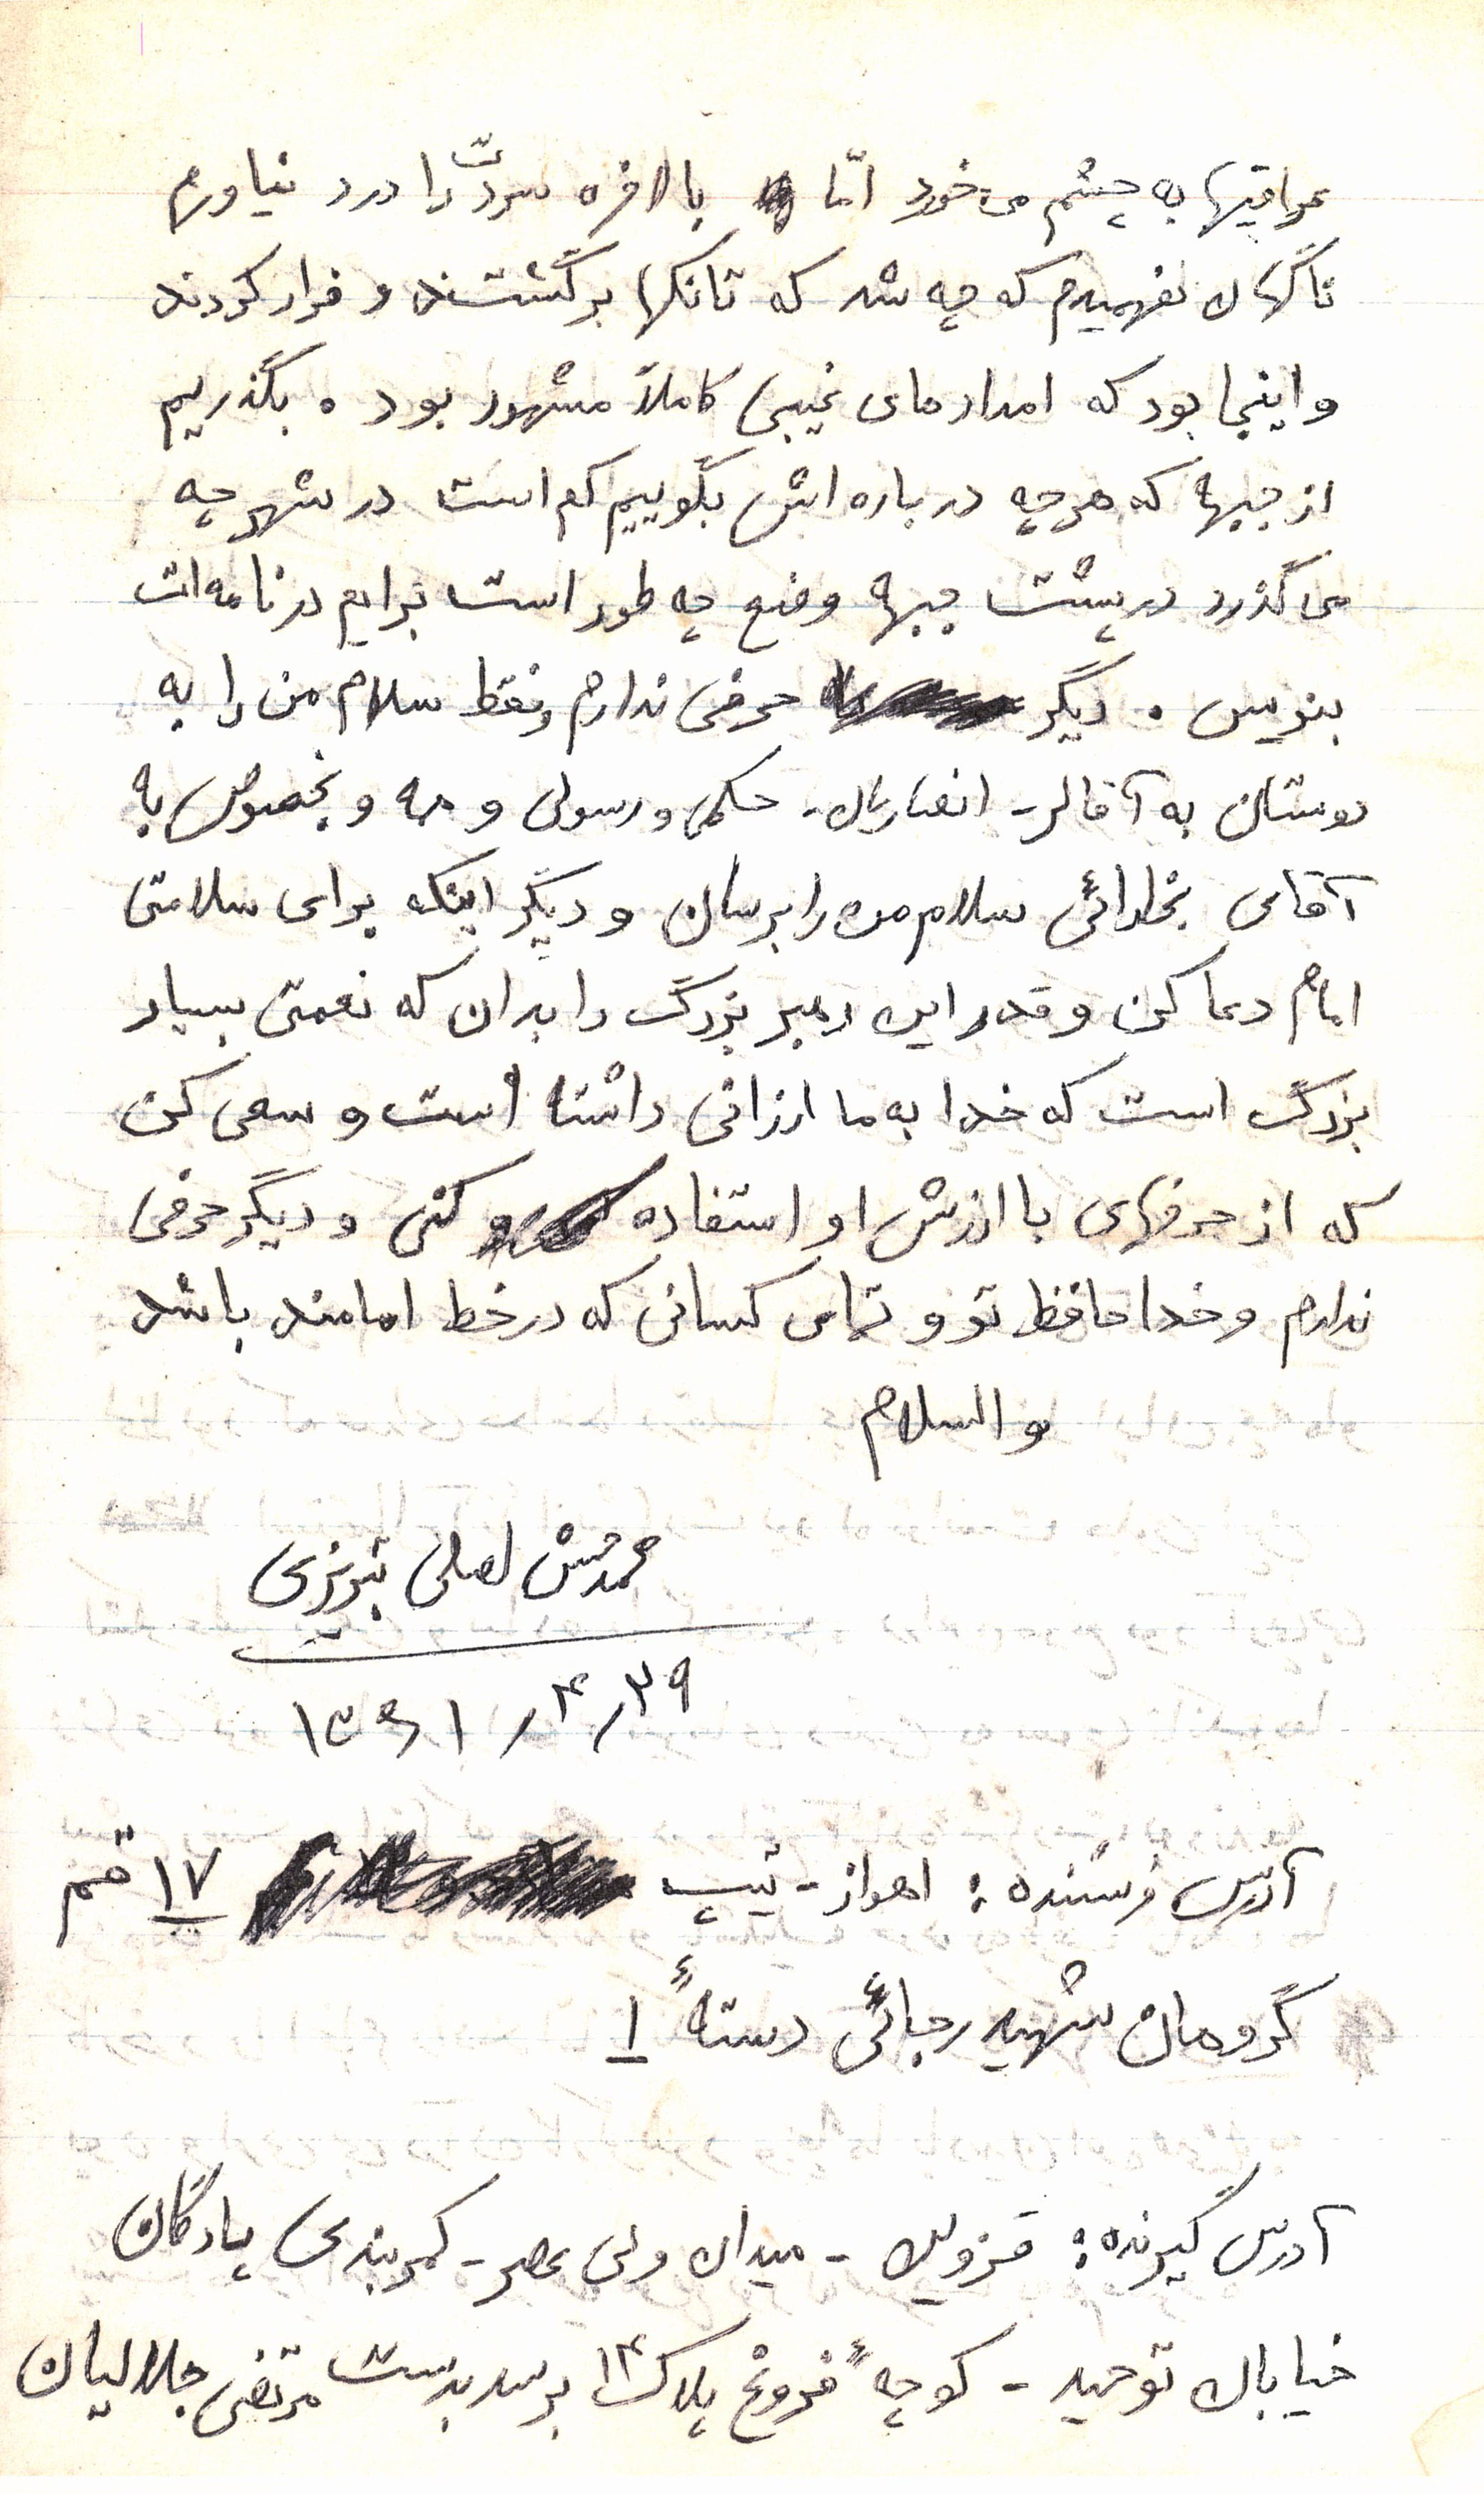 عراقیها به چشم می‌خورد امّا بالاخره سردّت را درد نیاورم
ناگهان نفهمیدم که چه شد که تانکها برگشتند و فرار کردند
و اینجا بود که امدادهای غیبی کاملاً مشهود بود . بگذریم
از جبها که هرچه درباره اش بگوییم کم است در شهر چه
می گذرد در پشت جبهه وضع چه طور است برایم در نامه ات
بنویس . دیگر حرفی ندارم فقط سلام من را به
دوستان به آقالر - انصاریان - حکمی و رسولی و همه و بخصوص به
آقای بخارائی سلام من را برسان و دیگر اینکه برای سلامتی
امام دعا کن و قدر این رهبر بزرگ را بدان که نعمتی بسیار
بزرگ است که خدا به ما ارزانی داشته است و سعی کن
که از حرفهای با ارزش او استفاده کنی و دیگر حرفی
ندارم و خدا حافظ تو و تمامی کسانی که در خط امامند باشد
والسلام
محمدحسن اصلی تبریزی
۱۳۶۱/۴/۲۹
آدرس فرستنده : اهواز - تیپ ۱۷ قم
گروهان شهید رجائی دستهٔ ۱
آدرس گیرنده : قزوین - میدان ولی عصر - کمربندی پادگان
خیابان توحید - کوچهٔ فروغ پلاک ۱۴ برسد بدست مرتضی جلالیان